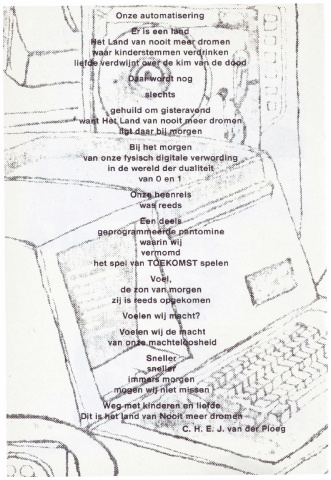 Onze automatisering
Er is een land
Het Land van nooit meer dromen
waar kinderstemmen verdrinken
liefde verdwijnt over de kim van de dood
Daar wordt nog
slechts
gehuild om gisteravond
want Het Land van nooit meer dromen
ligt daar bij morgen
Bij het morgen
van onze fysisch digitale verwording
in de wereld der dualiteit
van 0 en 1
Onze heenreis
was reeds
Een deels
geprogrammeerde pantomine
waarin wij
vermomd
het spel van TOEKOMST spelen
Voel,
de zon van morgen
zij is reeds opgekomen
Voelen wij macht?
Voelen wij de macht
van onze machteloosheid
Sneller
sneller
immers morgen
mogen wij niet missen
Weg met kinderen en liefde
Dit is het land van Nooit meer dromen
C. H. E. J. van der Ploeg